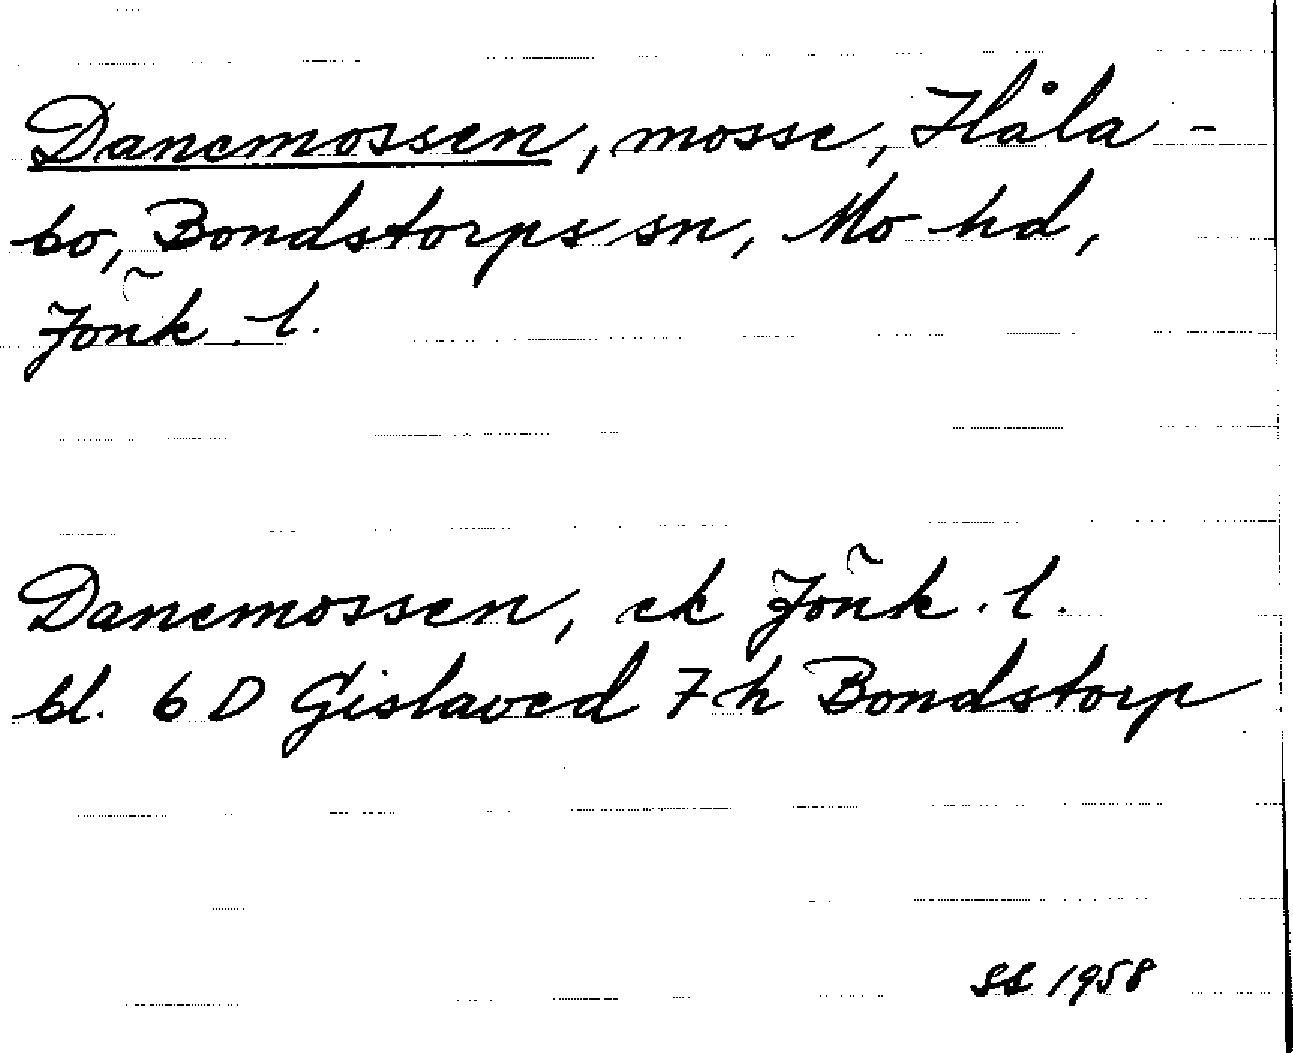 Danemossen, mosse, Håla-
bo, Bondstorps sn, Mo hd,
Jönk. l.
Danemossen, ek Jönk. l.
bl. 6 D Gislaved 7 h Bondstorp
SS 1958